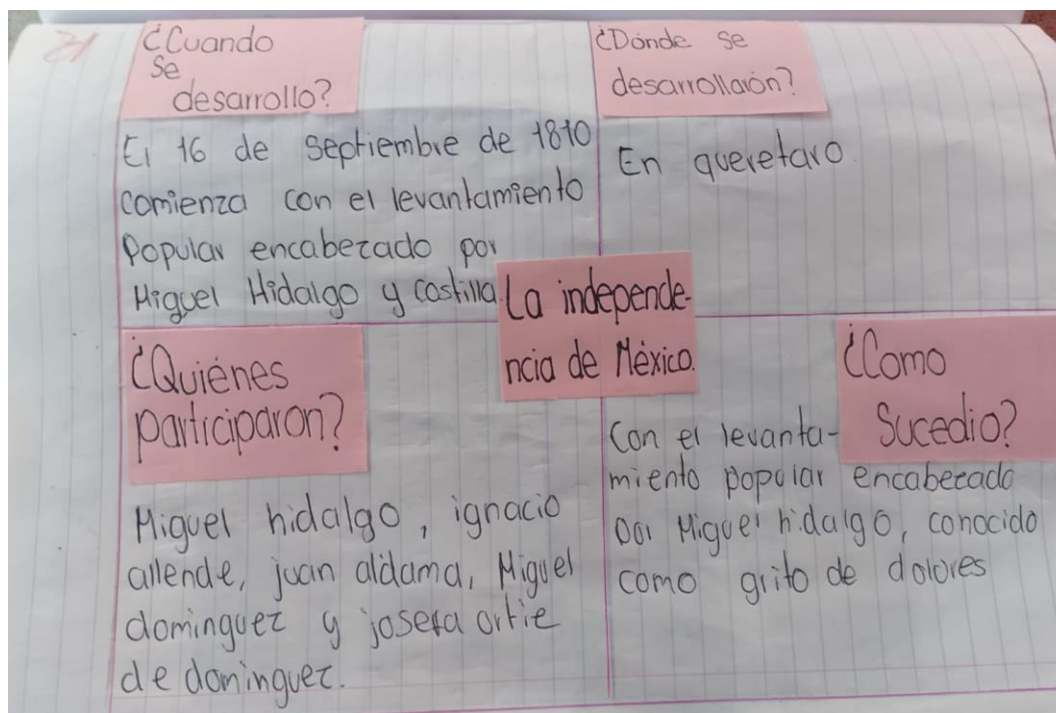 ¿Cuando
Se
desarrollo?
El 16 de Septiembre de 1810
comienza con el levantamiento
Popular encabezado por
Miguel Hidalgo y castilla.
¿Dónde se
desarrollarón?
En queretaro
La independe-
ncia de México.
¿Quiénes
participaron?
Miguel hidalgo, ignacio
allende, juan aldama, Miguel
dominguez y josefa ortie
de dominguez.
¿Como
Sucedio?
Con el levanta-
miento popular encabezado
por Miguel hidalgo, conocido
como grito de dolores